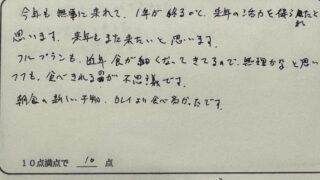 今年も無事に来れて、1年が終るのと、来年の活力を得られたと
思います。来年もまた来たいと思います。
フルプランも、近年食が細くなってきてるので、無理かなと思い
つつも、食べきれるのが不思議です。
朝食の新しい干物、カレイより食べ易かったです。
10点満点で 10 点